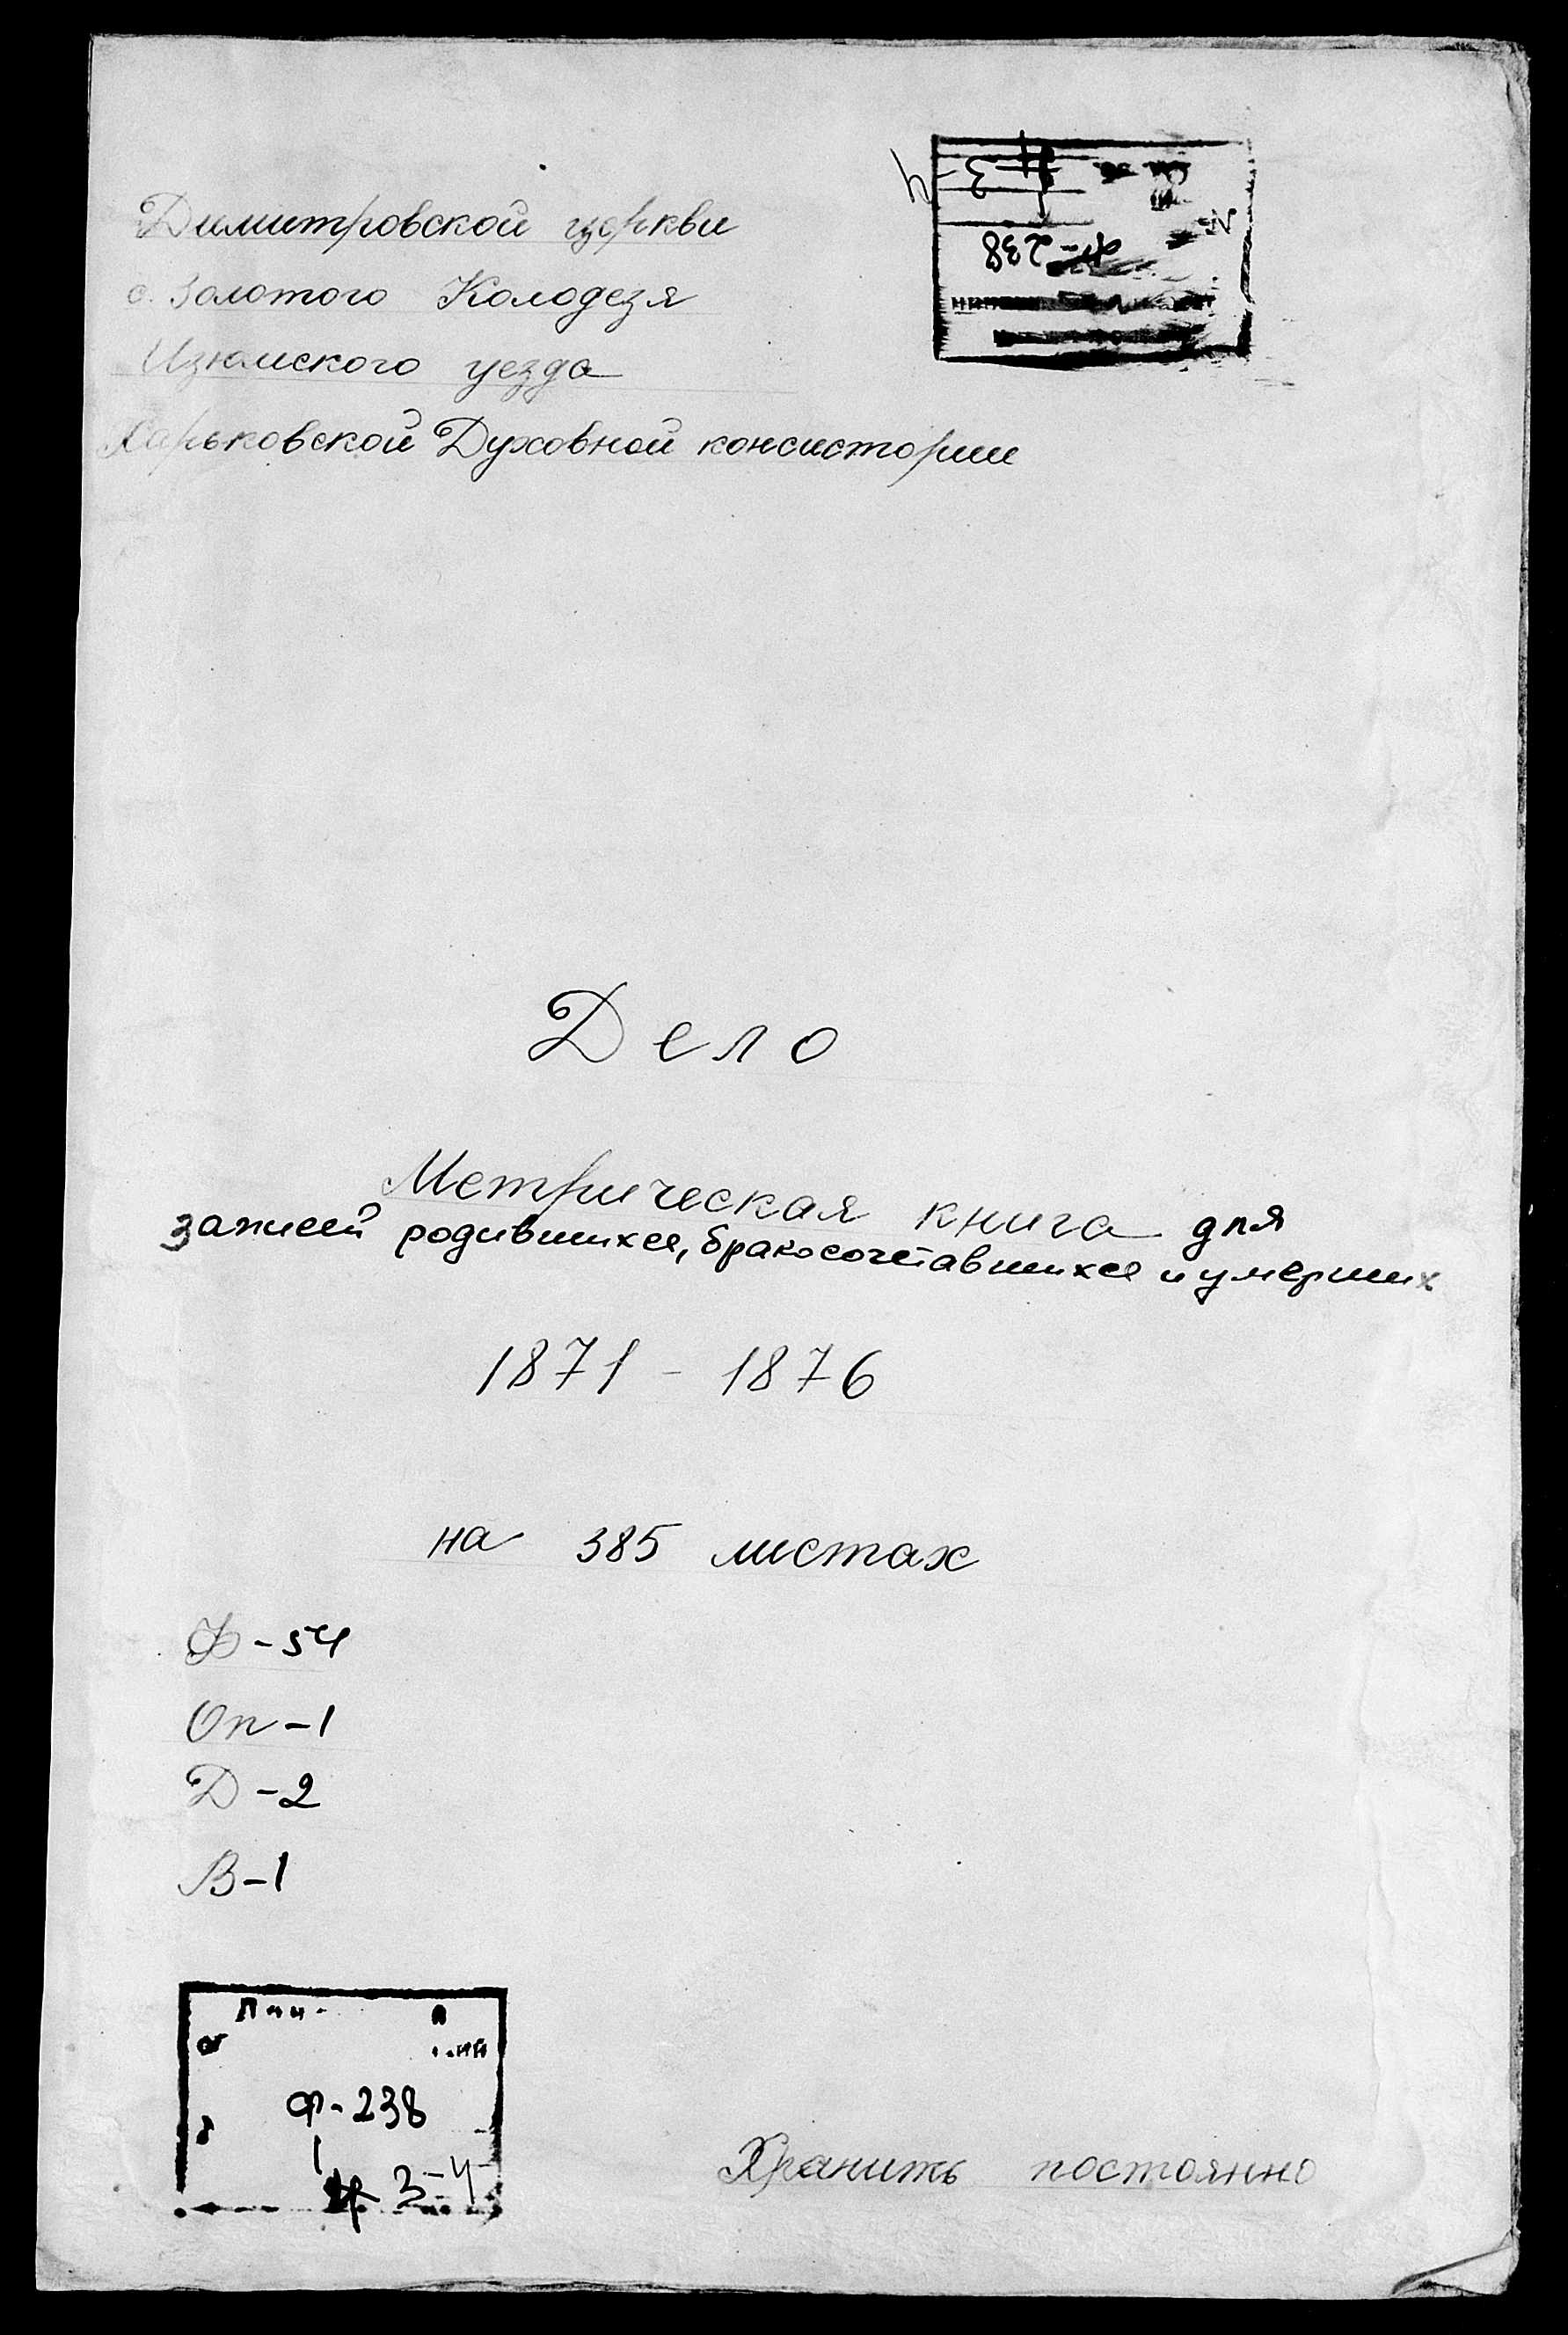 Димитровской церкви
с. Золотого Колодезя
Изюмского уезда
Харьковской Духовной консистории
Ф-238
Дело
Метрическая книга для
записей родившихся, бракосочетавшихся и умерших
1871 - 1876
на 385 листах
Ф-54
Оп-1
Д-2
В-1
Ф-238
1
3-4
Хранить постоянно